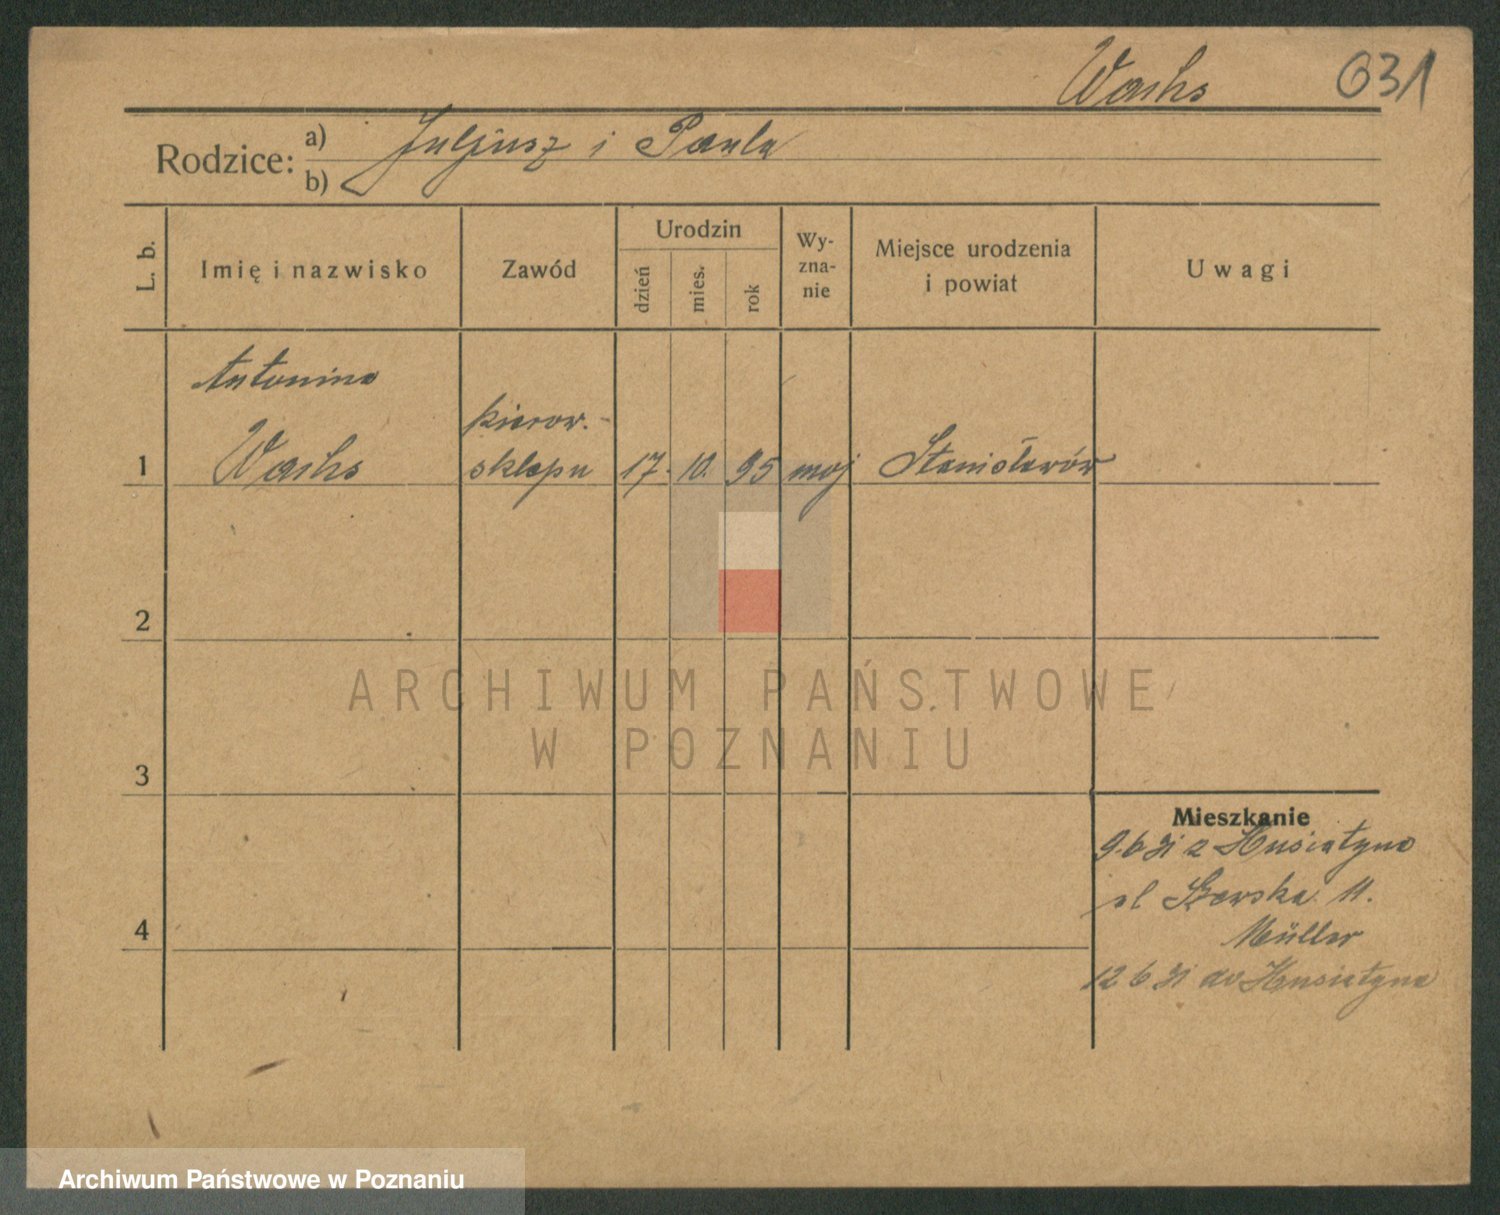 Wachs 031
Rodzice: a) Juljusz i Paula
b)
L. b. Imię i nazwisko Zawód Urodzin dzień mies. rok Wy-zna-nie Miejsce urodzenia i powiat Uwagi
Antonina
kierow.
1 Wachs sklepu 17. 10. 95 moj Stanisławów
2
ARCHIWUM PAŃSTWOWE
W POZNANIU
3
Mieszkanie
9.6 31 z Husiatyna
4
11.
Müller
12 6 31 do Husiatyna
Archiwum Państwowe w Poznaniu